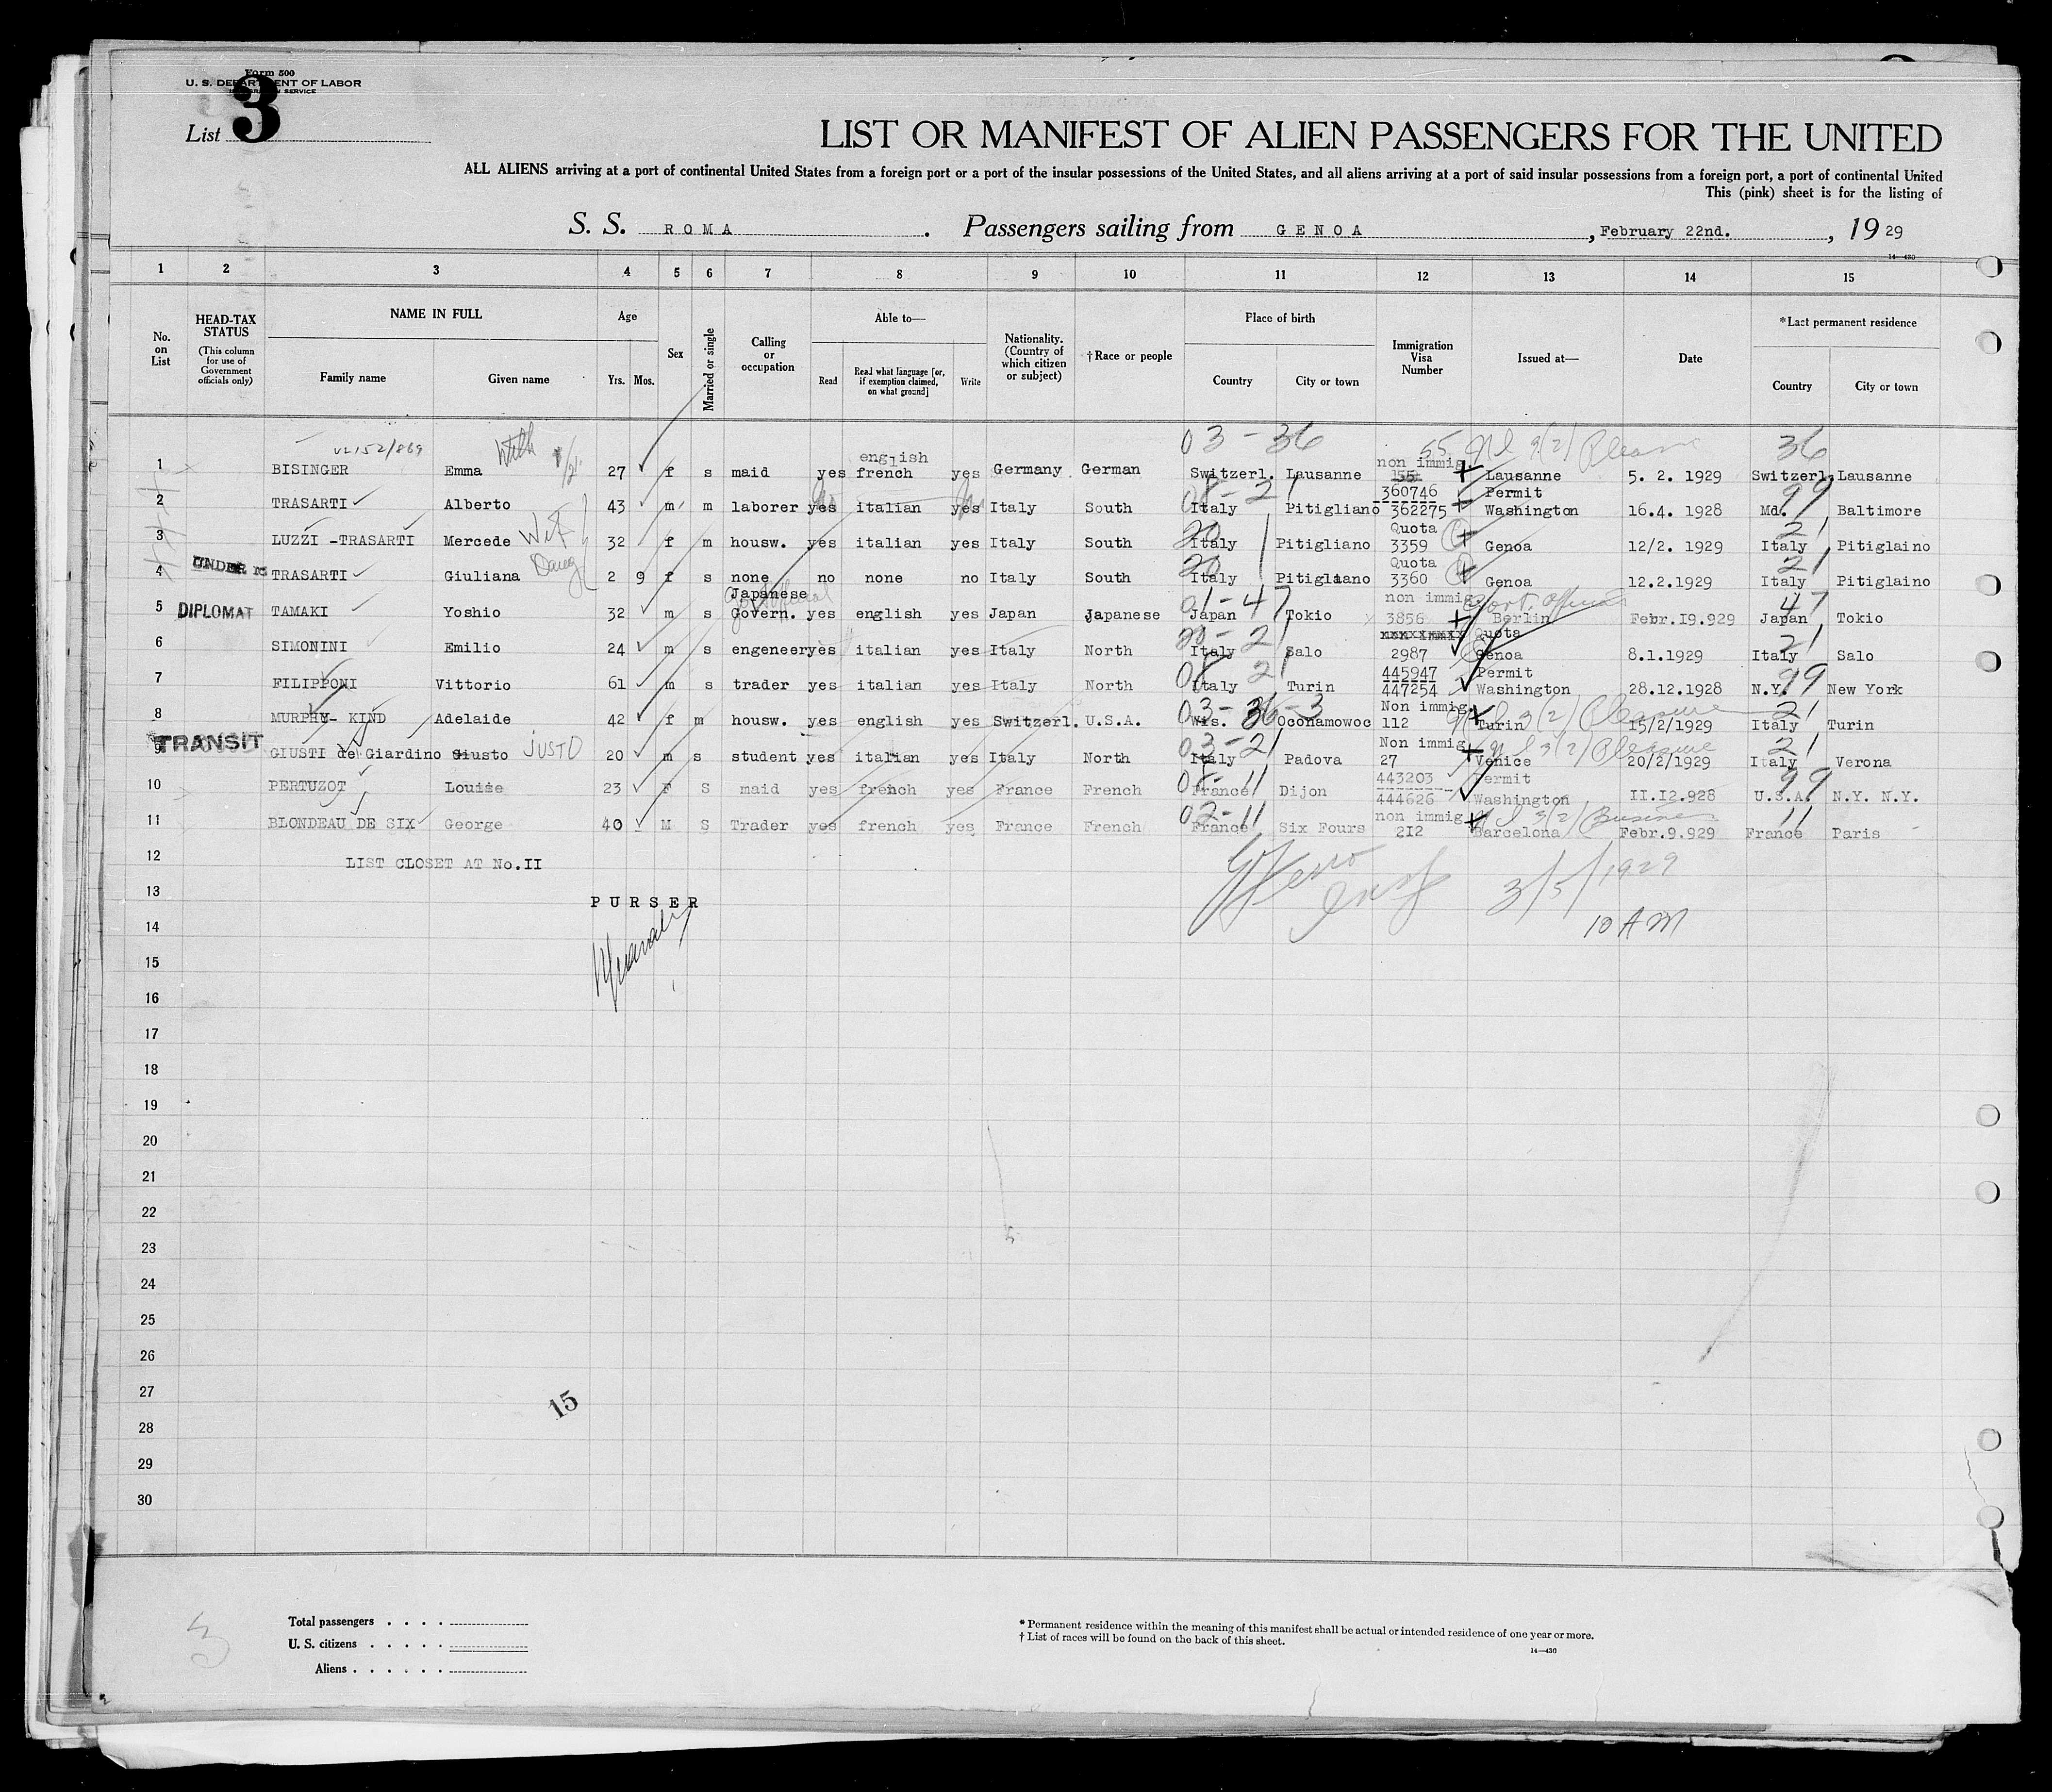 Form 500
U. S. DEPARTMENT OF LABOR
IMMIGRATION SERVICE
List 3
LIST OR MANIFEST OF ALIEN PASSENGERS FOR THE UNITED
ALL ALIENS arriving at a port of continental United States from a foreign port or a port of the insular possessions of the United States, and all aliens arriving at a port of said insular possessions from a foreign port, a port of continental United
This (pink) sheet is for the listing of
S. S. ROMA. Passengers sailing from GENOA, February 22nd., 1929
14—430
1 2 3 4 5 6 7 8 9 10 11 12 13 14 15
No. on List
HEAD-TAX STATUS (This column for use of Government officials only)
NAME IN FULL Family name Given name
Age Yrs. Mos.
Sex
Married or single
Calling or occupation
Able to— Read Read what language [or, if exemption claimed, on what ground] Write
Nationality. (Country of which citizen or subject)
†Race or people
Place of birth Country City or town
Immigration Visa Number
Issued at—
Date
*Last permanent residence Country City or town
03-36 55 36
1 BISINGER Emma 27 f s maid yes english french yes Germany German Switzerl. Lausanne non immig. 155. Lausanne 5. 2. 1929 Switzerl. Lausanne
2 TRASARTI Alberto 43 m m laborer yes italian yes Italy South Italy Pitigliano 360746 362275 Permit Washington 16.4. 1928 Md. 99 Baltimore
3 LUZZI -TRASARTI Mercede 32 f m housw. yes italian yes Italy South Italy Pitigliano Quota 3359 Genoa 12/2. 1929 Italy 21 Pitiglaino
4 UNDER 15 TRASARTI Giuliana 2 9 f s none no none no Italy South Italy Pitigliano Quota 3360 Genoa 12.2.1929 Italy 21 Pitiglaino
5 DIPLOMAT TAMAKI Yoshio 32 m s Japanese Govern. yes english yes Japan Japanese 01-47 Japan Tokio non immig. 3856 Berlin Febr.I9.929 47 Japan Tokio
6 SIMONINI Emilio 24 m s engeneer yes italian yes Italy North Italy Salo Quota 2987 Genoa 8.1.1929 Italy 21 Salo
7 FILIPPONI Vittorio 61 m s trader yes italian yes Italy North Italy Turin 445947 447254 Permit Washington 28.12.1928 N.Y. 99 New York
8 MURPHY- KIND Adelaide 42 f m housw. yes english yes Switzerl. U.S.A. 03-36-3 Wis. Oconamowoc Non immig. 112 Turin 15/2/1929 Italy 21 Turin
9 TRANSIT GIUSTI de Giardino Giusto JUSTO 20 m s student yes italian yes Italy North 03-21 Italy Padova Non immig. 27 Venice 3(2) Pleasure 20/2/1929 Italy 21 Verona
10 PERTUZOT Louise 23 F S maid yes french yes France French France Dijon 443203 444626 Permit Washington II.I2.928 U.S.A. 99 N.Y. N.Y.
11 BLONDEAU DE SIX George 40 M S Trader yes french yes France French 02-11 France Six Fours non immig. 2I2 Barcelona Febr.9.929 France 11 Paris
12 LIST CLOSET AT No.II
3/5/1929
13 PURSER
14 10 AM
15
16
17
18
19
20
21
22
23
24
25
26
27
15
28
29
30
Total passengers
U. S. citizens
Aliens
* Permanent residence within the meaning of this manifest shall be actual or intended residence of one year or more.
† List of races will be found on the back of this sheet.
14—430
3